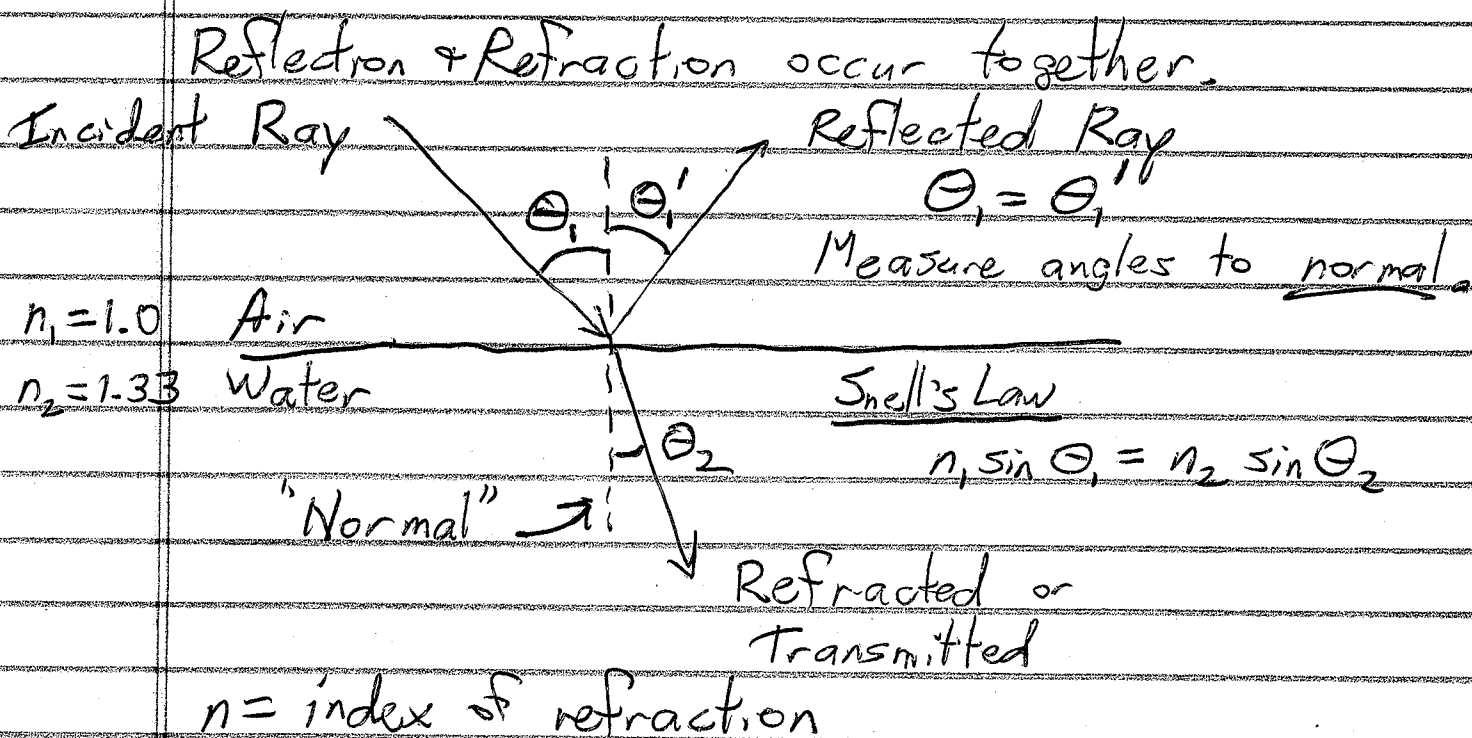 Reflection & Refraction occur together.
Incident Ray
Reflected Ray
θ₁ θ₁'
θ₁ = θ₁'
Measure angles to normal.
n₁ = 1.0 Air
n₂ = 1.33 Water
Snell's Law
θ₂
n₁ sin θ₁ = n₂ sin θ₂
"Normal"
Refracted or
Transmitted
n = index of refraction